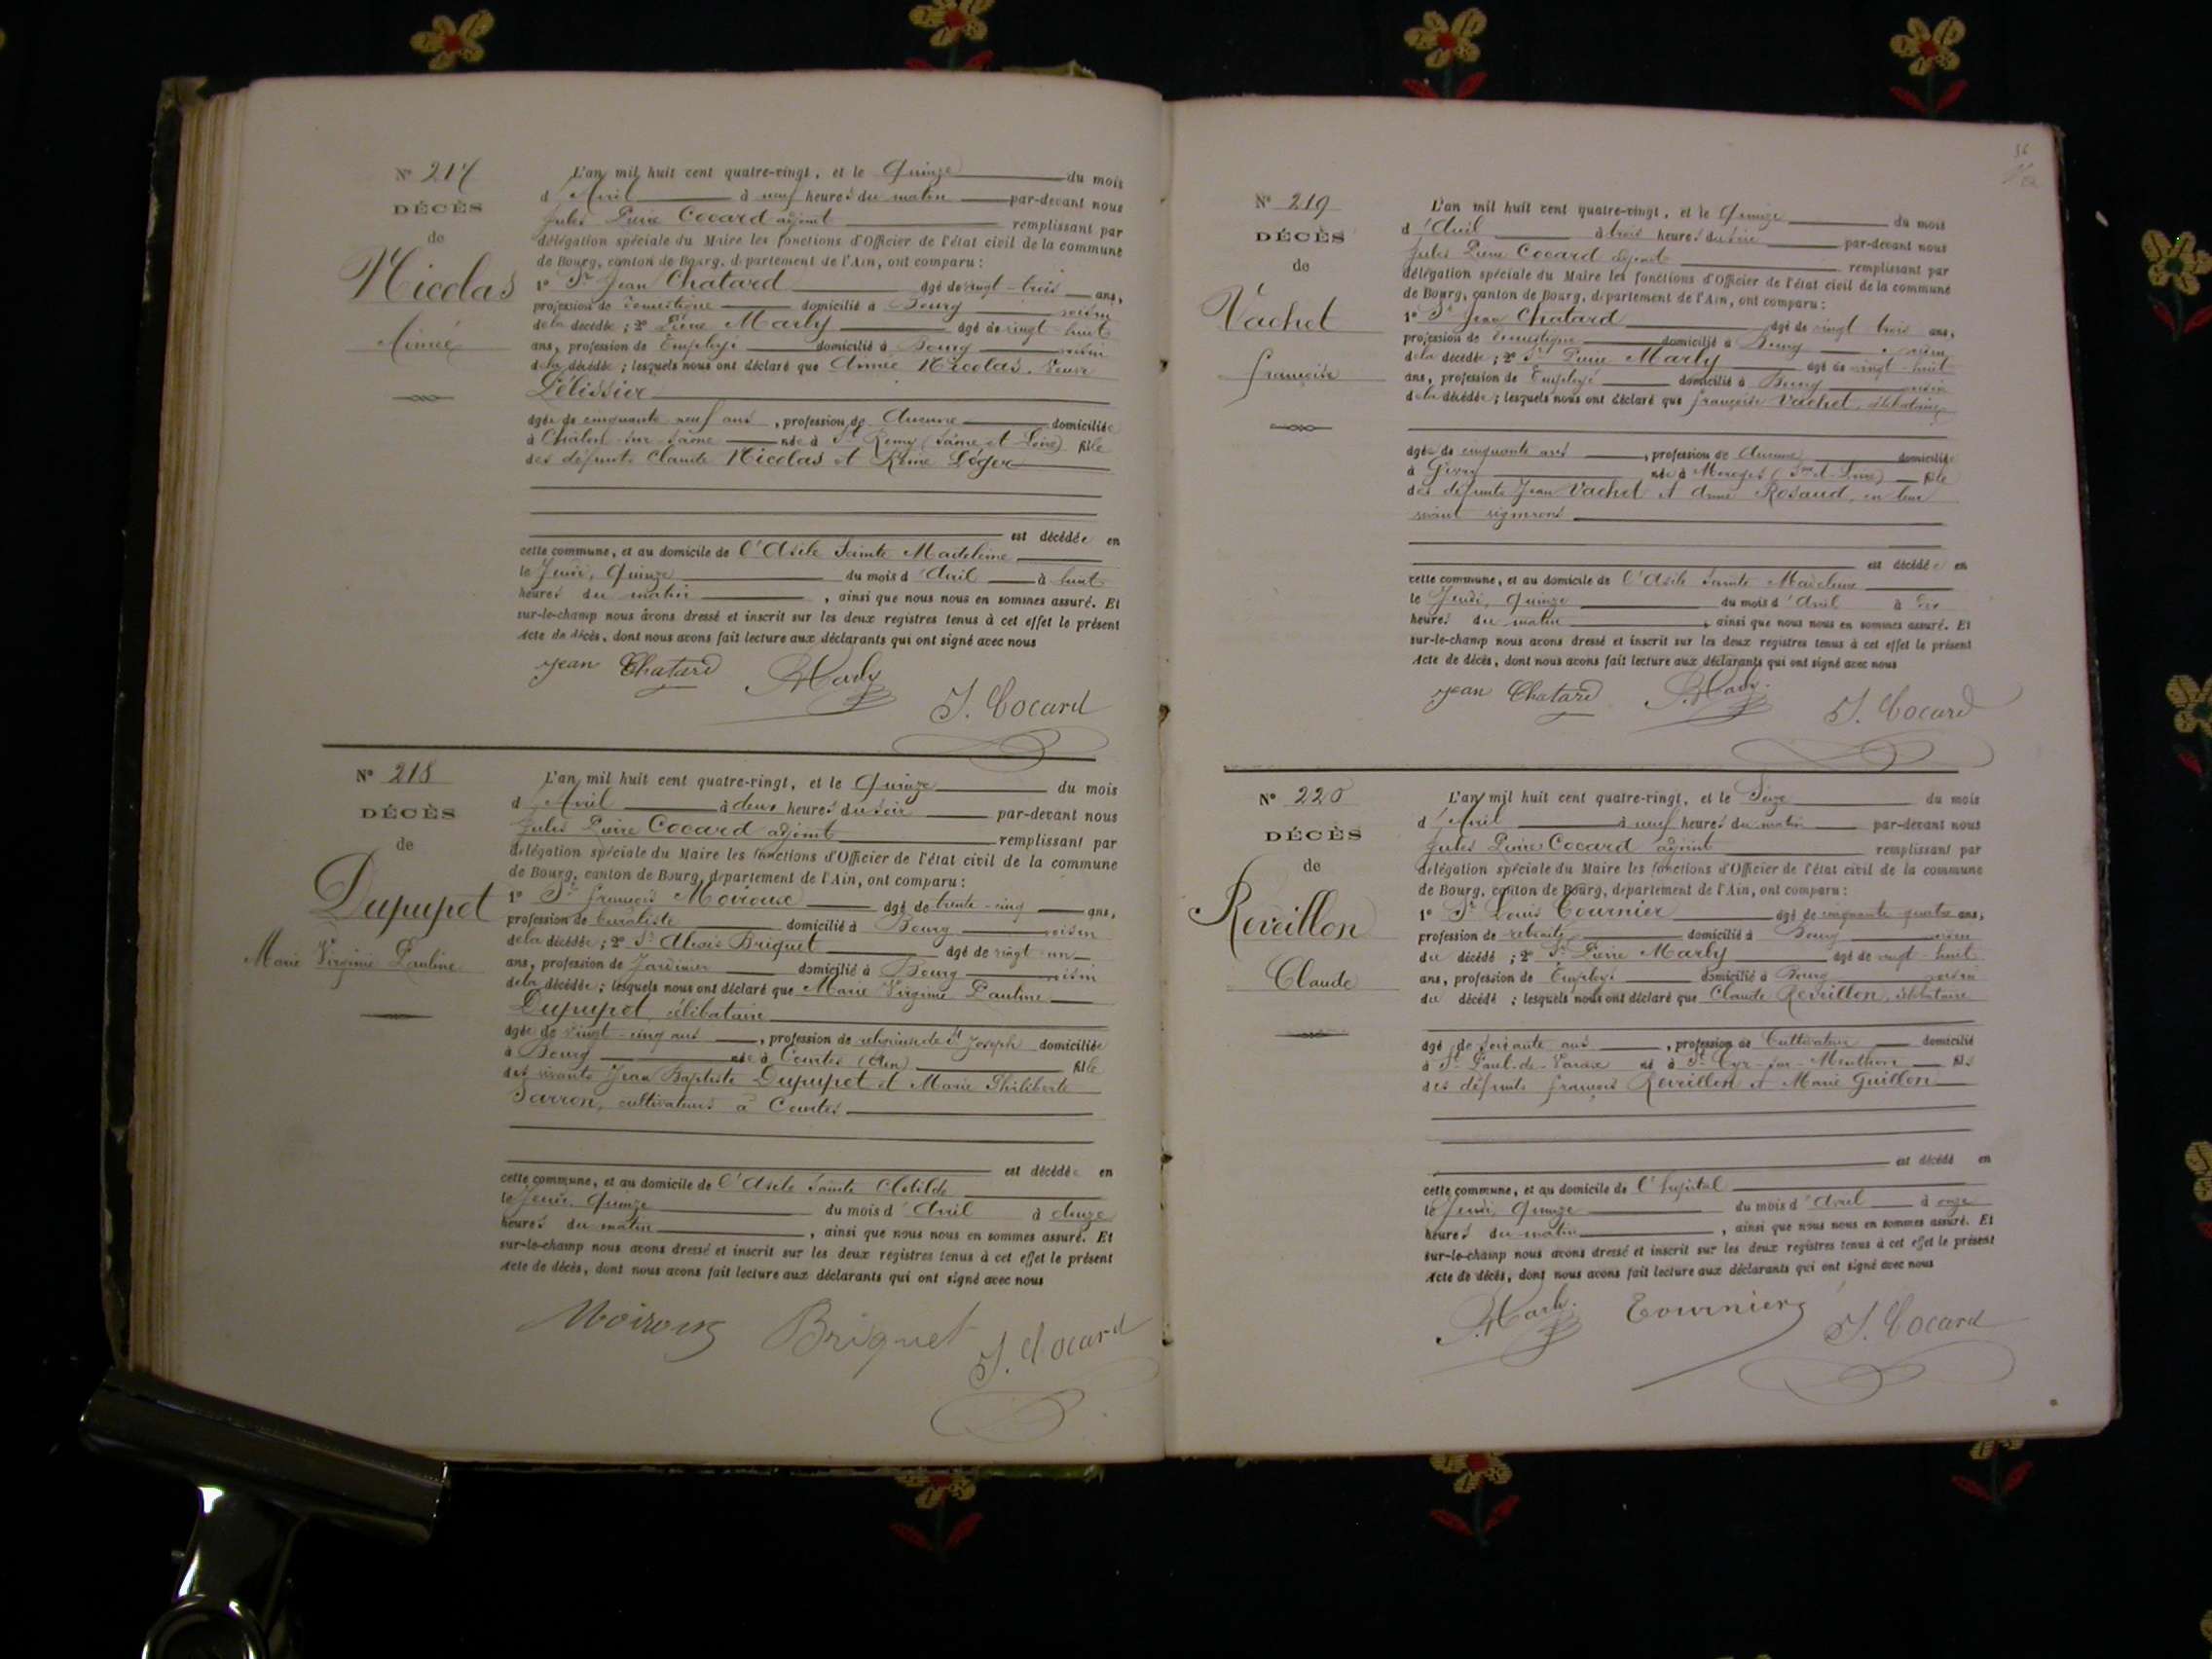 Nº 217
DÉCÈS
de
Nicolas
Aimée
L'an mil huit cent quatre-vingt, et le Quinze du mois
d'Avril à neuf heures du matin par-devant nous
Jules Pierre Cocard adjoint remplissant par
délégation spéciale du Maire les fonctions d'Officier de l'état civil de la commune
de Bourg, canton de Bourg, département de l'Ain, ont comparu :
1º Sr Jean Chatard âgé de vingt-trois ans,
profession de domestique domicilié à Bourg voisin
de la décédée ; 2º Pierre Marly âgé de vingt-huit
ans, profession de Employé domicilié à Bourg voisin
de la décédée ; lesquels nous ont déclaré que Aimée Nicolas, Veuve
Pélissier
âgée de cinquante neuf ans, profession de Aucune domiciliée
à Chalon-sur-Saône née à St Remy (Saône et Loire) fille
des défunts Claude Nicolas et Reine Léger
est décédée en
cette commune, et au domicile de l'Asile Sainte Madeleine
le Jeudi, Quinze du mois d'Avril à huit
heures du matin, ainsi que nous nous en sommes assuré. Et
sur-le-champ nous avons dressé et inscrit sur les deux registres tenus à cet effet le présent
Acte de décès, dont nous avons fait lecture aux déclarants qui ont signé avec nous
Jean Chatard Marly J. Cocard
Nº 218
DÉCÈS
de
Dupupet
Marie Virginie Pauline
L'an mil huit cent quatre-vingt, et le Quinze du mois
d'Avril à deux heures du soir par-devant nous
Jules Pierre Cocard adjoint remplissant par
délégation spéciale du Maire les fonctions d'Officier de l'état civil de la commune
de Bourg, canton de Bourg, département de l'Ain, ont comparu :
1º Sr François Moiroux âgé de trente-cinq ans,
profession de domicilié à Bourg voisin
de la décédée ; 2º Sr Alexis Briquet âgé de vingt-un
ans, profession de Jardinier domicilié à Bourg voisin
de la décédée ; lesquels nous ont déclaré que Marie Virginie Pauline
Dupupet, célibataire
âgée de vingt-cinq ans, profession de religieuse de St Joseph domiciliée
à Bourg née à Courtes (Ain) fille
des vivants Jean Baptiste Dupupet et Marie Philiberte
Sarron, cultivateurs à Courtes
est décédée en
cette commune, et au domicile de l'Asile Sainte Clotilde
le Jeudi, Quinze du mois d'Avril à onze
heures du matin, ainsi que nous nous en sommes assuré. Et
sur-le-champ nous avons dressé et inscrit sur les deux registres tenus à cet effet le présent
Acte de décès, dont nous avons fait lecture aux déclarants qui ont signé avec nous
Moiroux Briquet J. Cocard
36
Nº 219
DÉCÈS
de
Vachet
Françoise
L'an mil huit cent quatre-vingt, et le Quinze du mois
d'Avril à trois heures du soir par-devant nous
Jules Pierre Cocard adjoint remplissant par
délégation spéciale du Maire les fonctions d'Officier de l'état civil de la commune
de Bourg, canton de Bourg, département de l'Ain, ont comparu :
1º Sr Jean Chatard âgé de vingt trois ans,
profession de domestique domicilié à Bourg voisin
de la décédée ; 2º Sr Pierre Marly âgé de vingt-huit
ans, profession de Employé domicilié à Bourg voisin
de la décédée ; lesquels nous ont déclaré que Françoise Vachet, célibataire
âgée de cinquante ans, profession de Aucune domiciliée
à Givry née à Moroges (Sne et Loire) fille
des défunts Jean Vachet et Anne Rosaud, en leur
vivant vignerons
est décédée en
cette commune, et au domicile de l'Asile Sainte Madeleine
le Jeudi, Quinze du mois d'Avril à dix
heures du matin, ainsi que nous nous en sommes assuré. Et
sur-le-champ nous avons dressé et inscrit sur les deux registres tenus à cet effet le présent
Acte de décès, dont nous avons fait lecture aux déclarants qui ont signé avec nous
Jean Chatard Marly J. Cocard
Nº 220
DÉCÈS
de
Reveillon
Claude
L'an mil huit cent quatre-vingt, et le Seize du mois
d'Avril à neuf heures du matin par-devant nous
Jules Pierre Cocard adjoint remplissant par
délégation spéciale du Maire les fonctions d'Officier de l'état civil de la commune
de Bourg, canton de Bourg, département de l'Ain, ont comparu :
1º Sr Louis Tournier âgé de cinquante quatre ans,
profession de retraité domicilié à Bourg voisin
du décédé ; 2º Sr Pierre Marly âgé de vingt-huit
ans, profession de Employé domicilié à Bourg voisin
du décédé ; lesquels nous ont déclaré que Claude Reveillon, célibataire
âgé de soixante ans, profession de Cultivateur domicilié
à St Paul-de-Varax né à St Cyr-sur-Menthon fils
des défunts François Reveillon et Marie Guillon
est décédé en
cette commune, et au domicile de l'hôpital
le Jeudi, Quinze du mois d'Avril à onze
heures du matin, ainsi que nous nous en sommes assuré. Et
sur-le-champ nous avons dressé et inscrit sur les deux registres tenus à cet effet le présent
Acte de décès, dont nous avons fait lecture aux déclarants qui ont signé avec nous
Marly Tournier J. Cocard